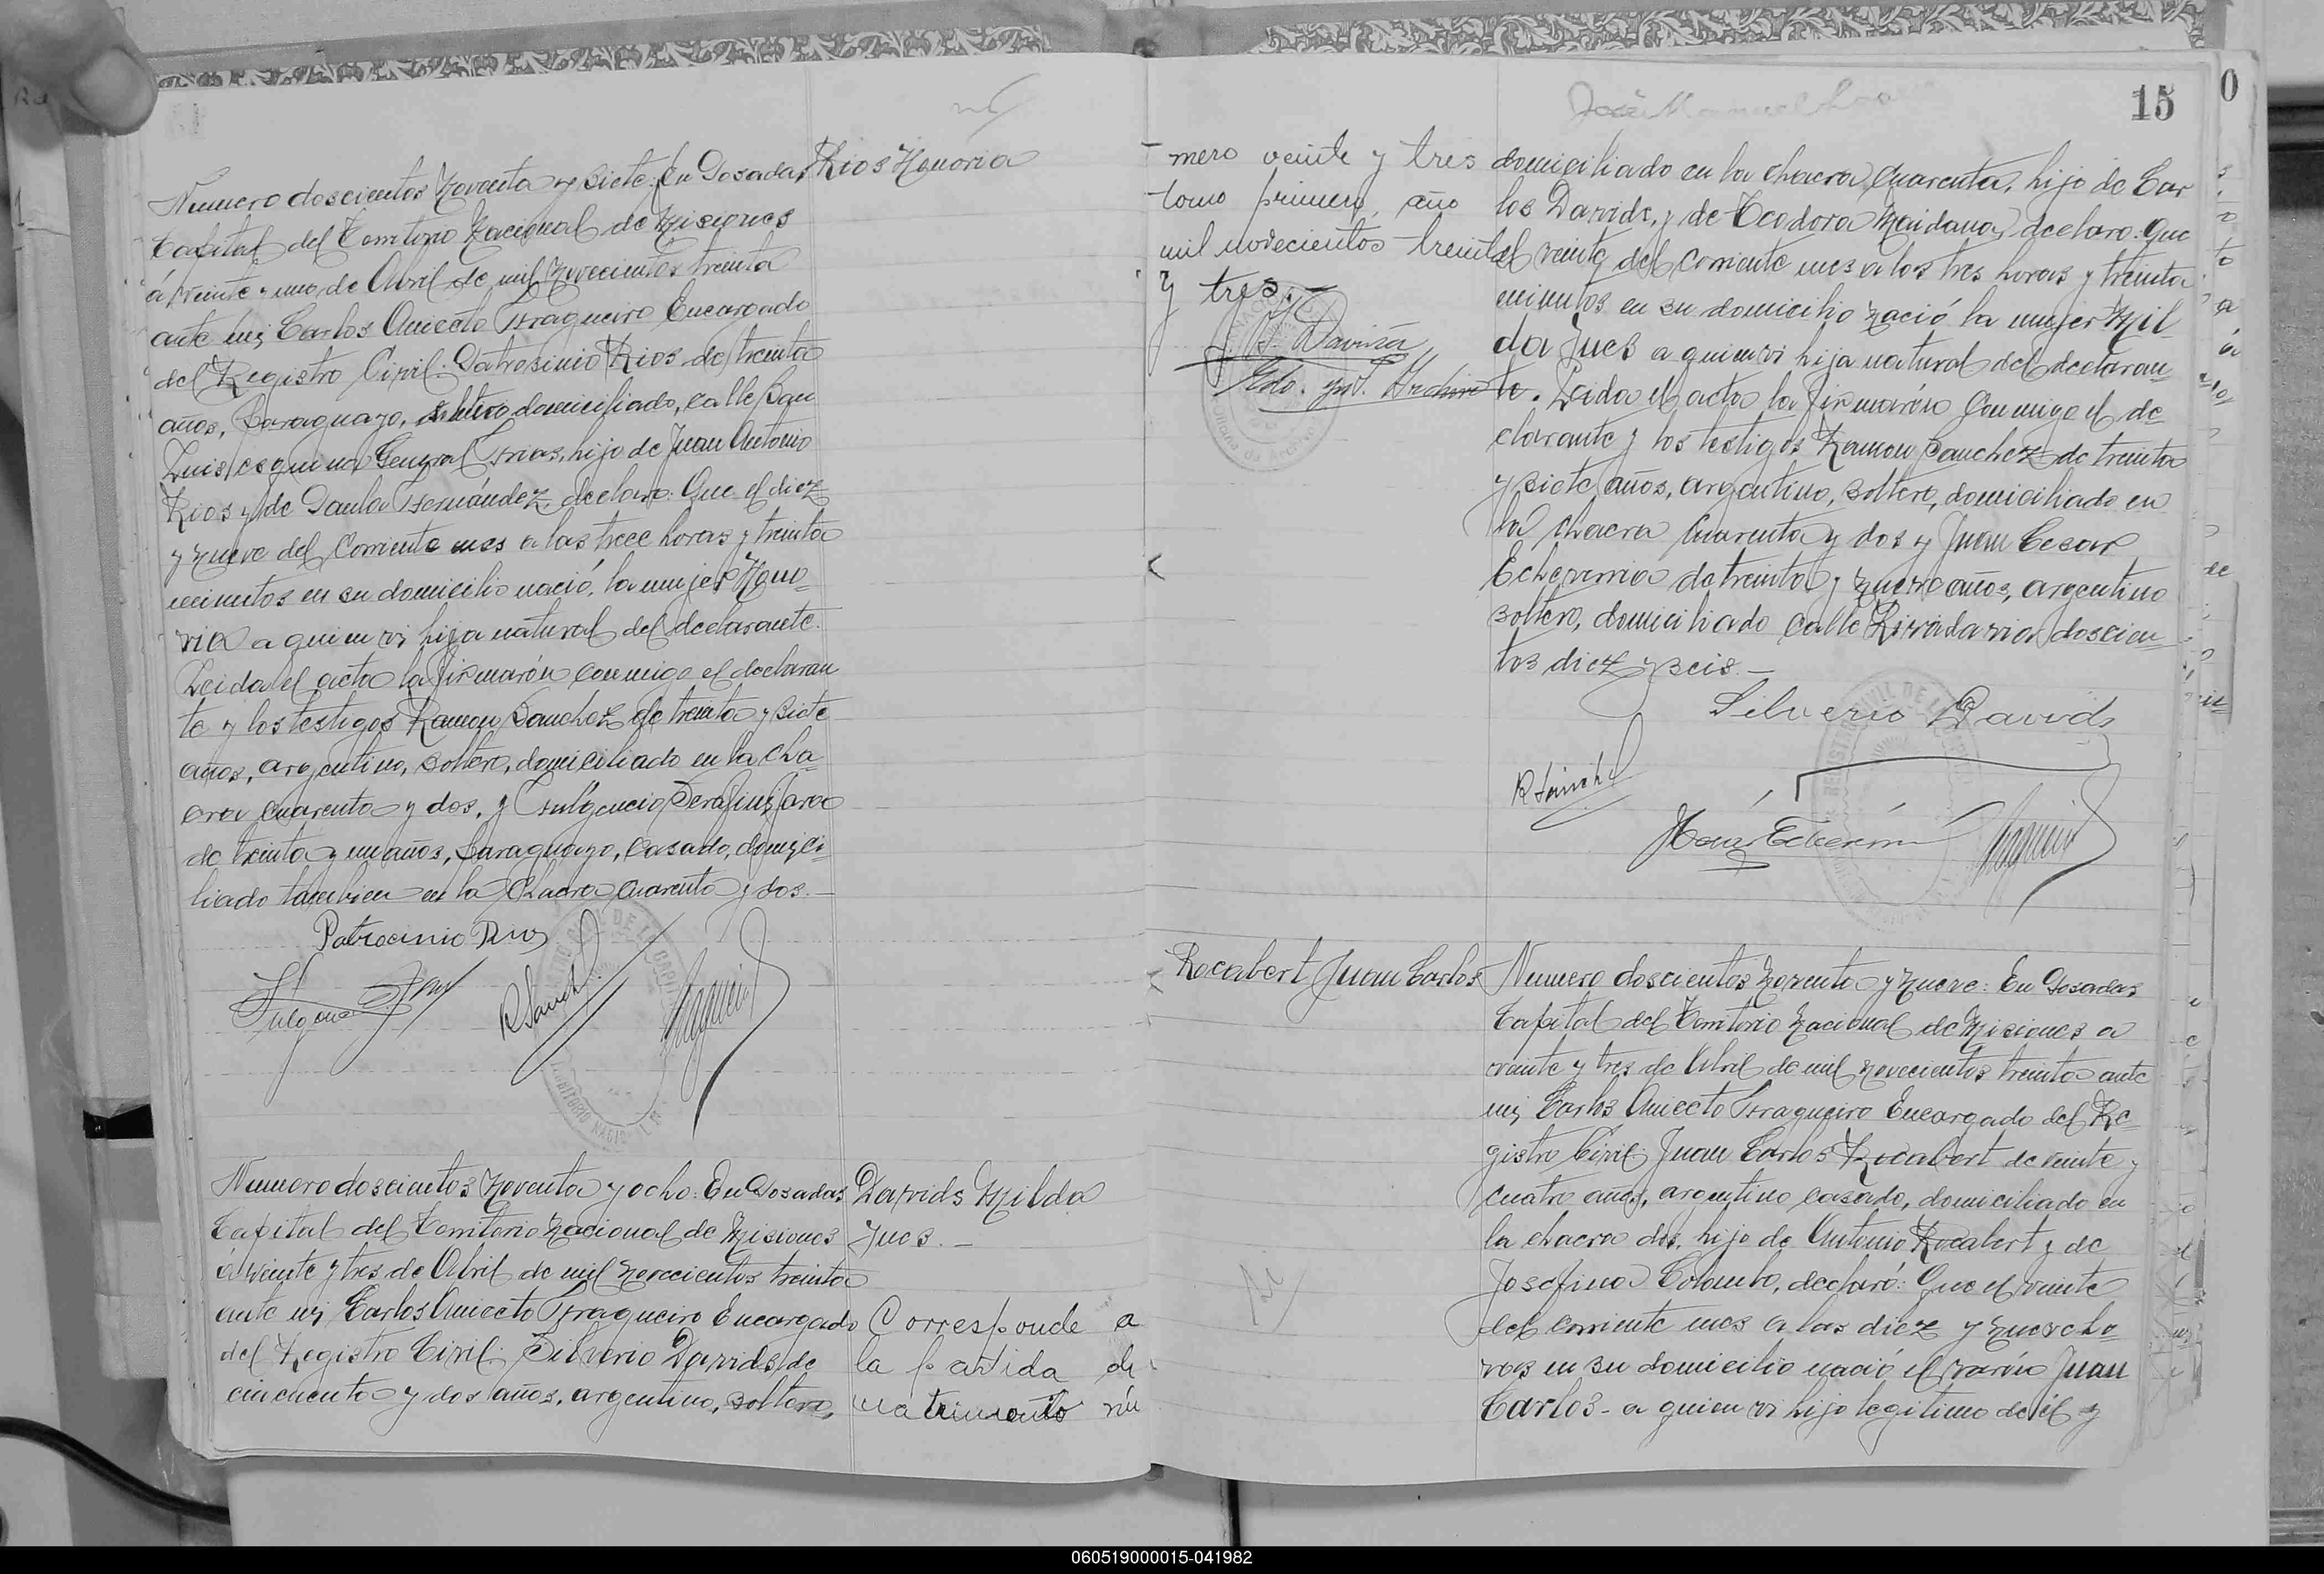 Numero doscientos noventa y siete: En Posadas
Capital del Territorio Nacional de Misiones
á veinte y uno de Abril de mil novecientos treinta
ante mi, Carlos Aniceto Fragueiro Encargado
del Registro Civil: Patrosinio Rios de treinta
años, Paraguayo, soltero, domiciliado, calle San
Luis esquina General Frias, hijo de Juan Antonio
Rios y de Paula Fernández, declaro: Que el diez
y nueve del corriente mes a las trece horas y treinta
minutos en su domicilio nació, la mujer Hono-
ria a quien vi hija natural del declarante.
Leida el acta la firmarón conmigo el declaran
te y los testigos Ramon Sanchez de treinta y siete
años, argentino, soltero, domiciliado en la cha-
cra cuarenta y dos, y Fulgencio Serafin Jara
de treinta y un años, Paraguayo, casado, domici-
liado tambien en la Chacra cuarenta y dos.—
Rios Honoria
Patrocinio Rios
R Sanchez
Numero doscientos noventa y ocho: En Posadas
Capital del Territorio Nacional de Misiones
á veinte y tres de Abril de mil novecientos treinta
ante mi, Carlos Aniceto Fragueiro Encargado
del Registro Civil: Silverio Davids de
cincuenta y dos años, argentino, soltero,
Davids Milda
Ines.—
Corresponde a
la partida de
matrimonio nú
15
0
José Manuel
mero veinte y tres
tomo primero, año
mil novecientos treinta
y tres.—
domiciliado en la chacra cuarenta, hijo de Car
los Davids, y de Teodora Maidana, declaro: Que
el veinte del corriente mes a las tres horas y treinta
minutos en su domicilio nació la mujer Mil
da Ines a quien vi hija natural del declaran-
te. Leida el acta la firmarón conmigo el de-
clarante y los testigos Ramon Sanchez de treinta
y siete años, argentino, soltero, domiciliado en
la chacra cuarenta y dos y Juan Cesar
Echeverria de treinta y nueve años, argentino
soltero, domiciliado calle Rivadavia doscien-
tos diez y seis.—
Silverio Davids
R Sanchez
Rocabert Juan Carlos
Numero doscientos noventa y nueve: En Posadas
Capital del Territorio Nacional de Misiones a
veinte y tres de Abril de mil novecientos treinta ante
mi, Carlos Aniceto Fragueiro Encargado del Re-
gistro Civil: Juan Carlos Rocabert de veinte y
cuatro años, argentino casado, domiciliado en
la chacra dos, hijo de Antonio Rocabert y de
Josefina Colombo, declaró: Que el veinte
del corriente mes a las diez y nueve ho-
ras en su domicilio nació el varón Juan
Carlos- a quien vi hijo legitimo de él y
060519000015-041982